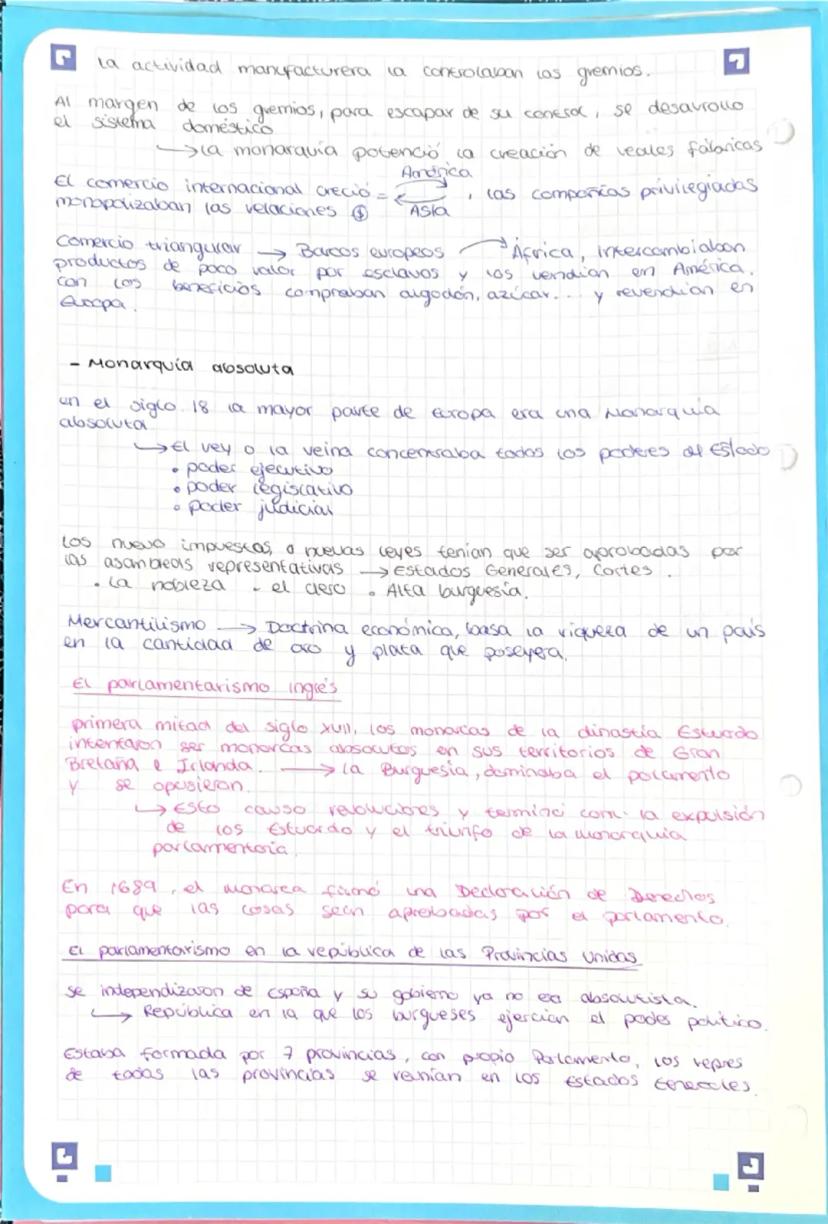 La actividad manufacturera la controlaban los gremios.
Al margen de los gremios, para escapar de su control, se desarrollo
el sistema doméstico
→ La monarquía potenció la creación de reales fábricas
América
El comercio internacional creció = , las compañías privilegiadas
monopolizaban las relaciones $ Asia
Comercio triangular → Barcos europeos → África, intercambiaban
productos de poco valor por esclavos y los vendían en América,
con los beneficios compraban algodón, azúcar... y revendían en
Europa.
- Monarquía absoluta
en el siglo 18 la mayor parte de Europa era una Monarquía
absoluta
→ El rey o la reina concentraba todos los poderes del Estado
• poder ejecutivo
• poder legislativo
• poder judicial
Los nuevo impuestos, o nuevas leyes tenían que ser aprobadas por
las asambleas representativas → Estados Generales, Cortes.
• La nobleza • el clero • Alta burguesía.
Mercantilismo → Doctrina económica, basa la riqueza de un país
en la cantidad de oro y plata que poseyera.
El parlamentarismo inglés
primera mitad del siglo XVII, los monarcas de la dinastía Estuardo
intentaron ser monarcas absolutos en sus territorios de Gran
Bretaña e Irlanda. → La Burguesía, dominaba el parlamento
y se opusieron.
→ Esto causo revoluciones y terminó con la expulsión
de los Estuardo y el triunfo de la monarquía
parlamentaria.
En 1689, el monarca firmó una Declaración de Derechos
para que las cosas sean aprobadas por el parlamento.
El parlamentarismo en la república de las Provincias Unidas
se independizaron de España y su gobierno ya no era absolutista.
→ República en la que los burgueses ejercían el poder político.
Estaba formada por 7 provincias, con propio Parlamento, los repres
de todas las provincias se reunían en los Estados Generales.